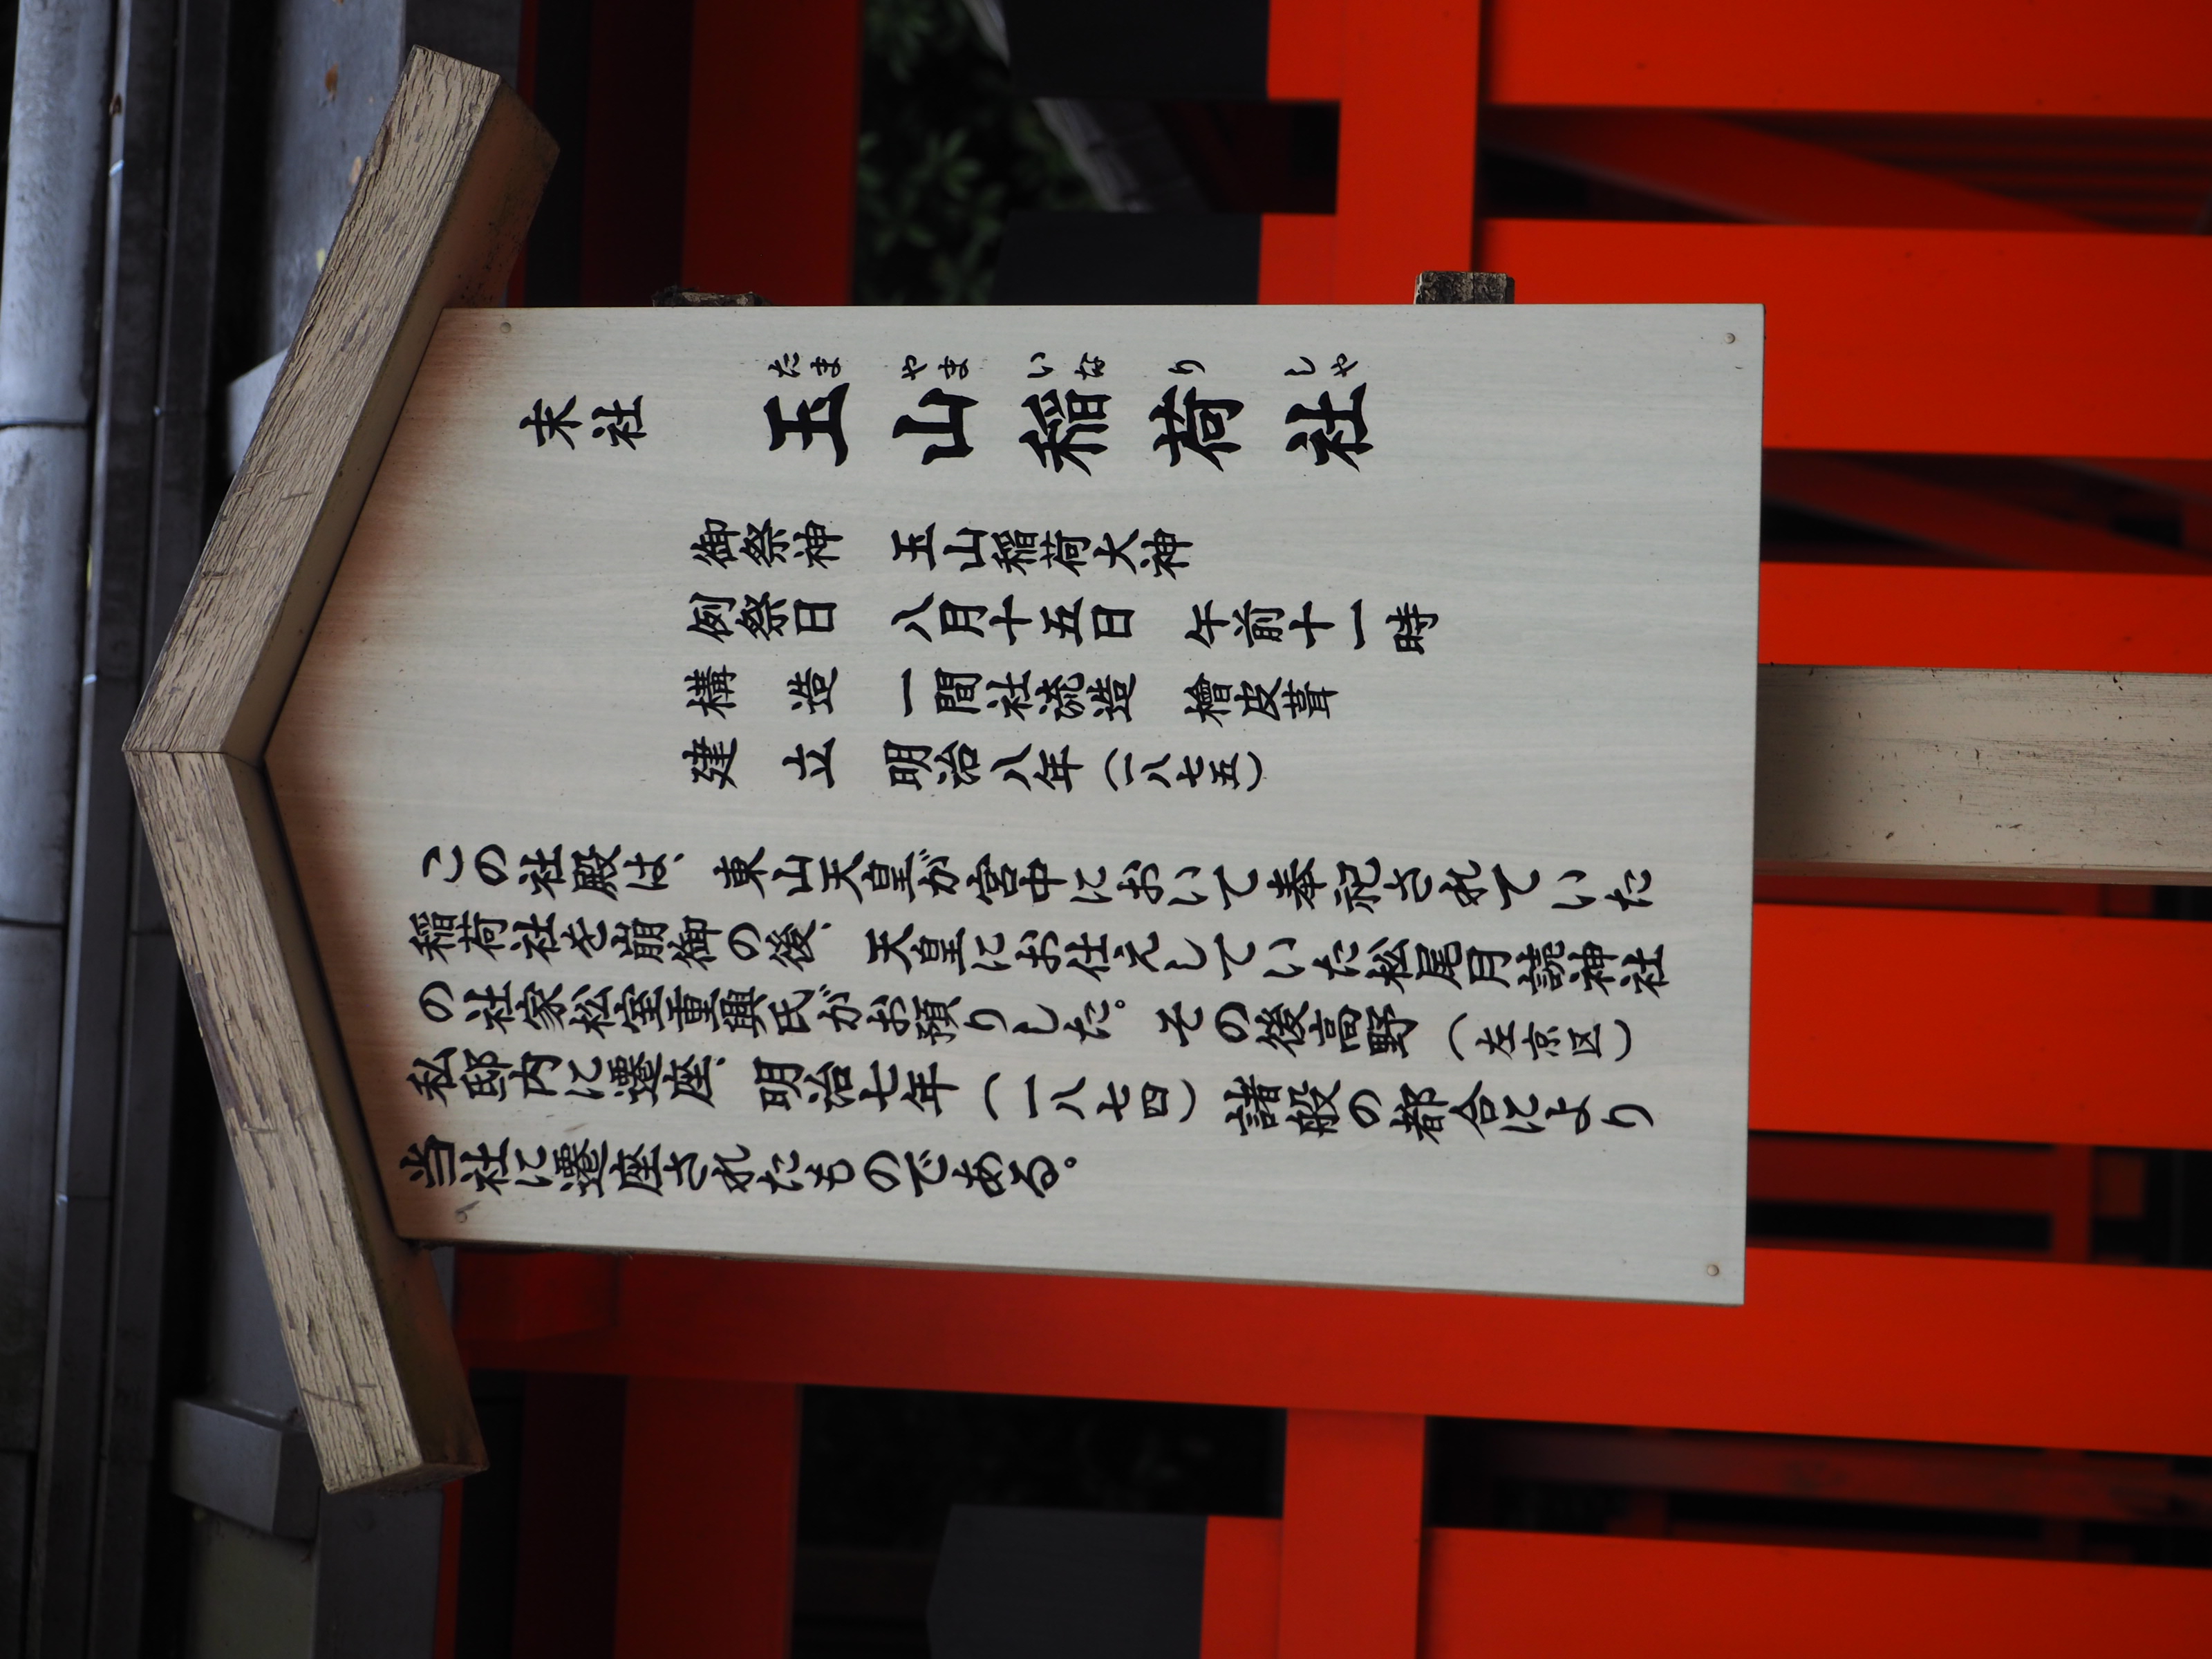 末社 玉山稲荷社
たまやまいなりしゃ
御祭神 玉山稲荷大神
例祭日 八月十五日 午前十一時
構造 一間社流造 檜皮葺
建立 明治八年(一八七五)
この社殿は、東山天皇が宮中において奉祀されていた
稲荷社を崩御の後、天皇にお仕えしていた松尾月読神社
の社家松室重興氏がお預りした。その後高野(左京区)
私邸内に遷座、明治七年(一八七四)諸般の都合により
当社に遷座されたものである。